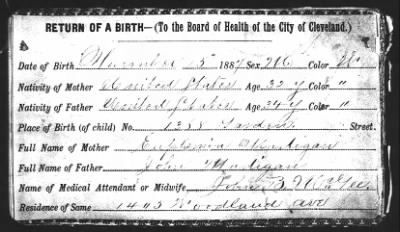 RETURN OF A BIRTH—(To the Board of Health of the City of Cleveland.)
Date of Birth 5" 1887 Sex M Color W
Nativity of Mother United States Age 22 y Color "
Nativity of Father United States Age 24 y Color "
Place of Birth (of child) No. Street.
Full Name of Mother
Full Name of Father John
Name of Medical Attendant or Midwife John B.
Residence of Same 1403 Woodland ave